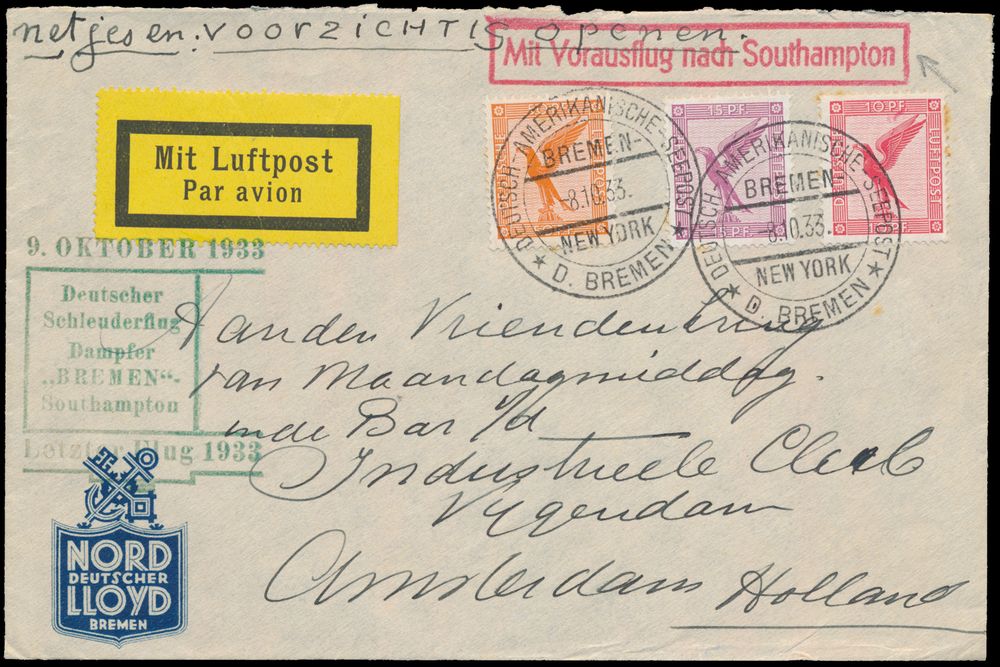 netjes en. VOORZICHTIG openen.
Mit Vorausflug nach Southampton
Mit Luftpost
Par avion
15 PF
10 PF
DEUTSCH-AMERIKANISCHE-SEEPOST
BREMEN-
-8.10.33.
NEW YORK
★ D. BREMEN ★
DEUTSCH-AMERIKANISCHE-SEEPOST
BREMEN-
-8.10.33.
NEW YORK
★ D. BREMEN ★
15 PF
DEUTSCHE
9. OKTOBER 1933
Deutscher
Schleuderflug
Dampfer
„BREMEN“-
Southampton
Letzter Flug 1933
Aan den Vriendenkring
van Maandagmiddag.
in de Bar i/d
Industrieele Club
Vygendam
Amsterdam Holland
NORD
DEUTSCHER
LLOYD
BREMEN